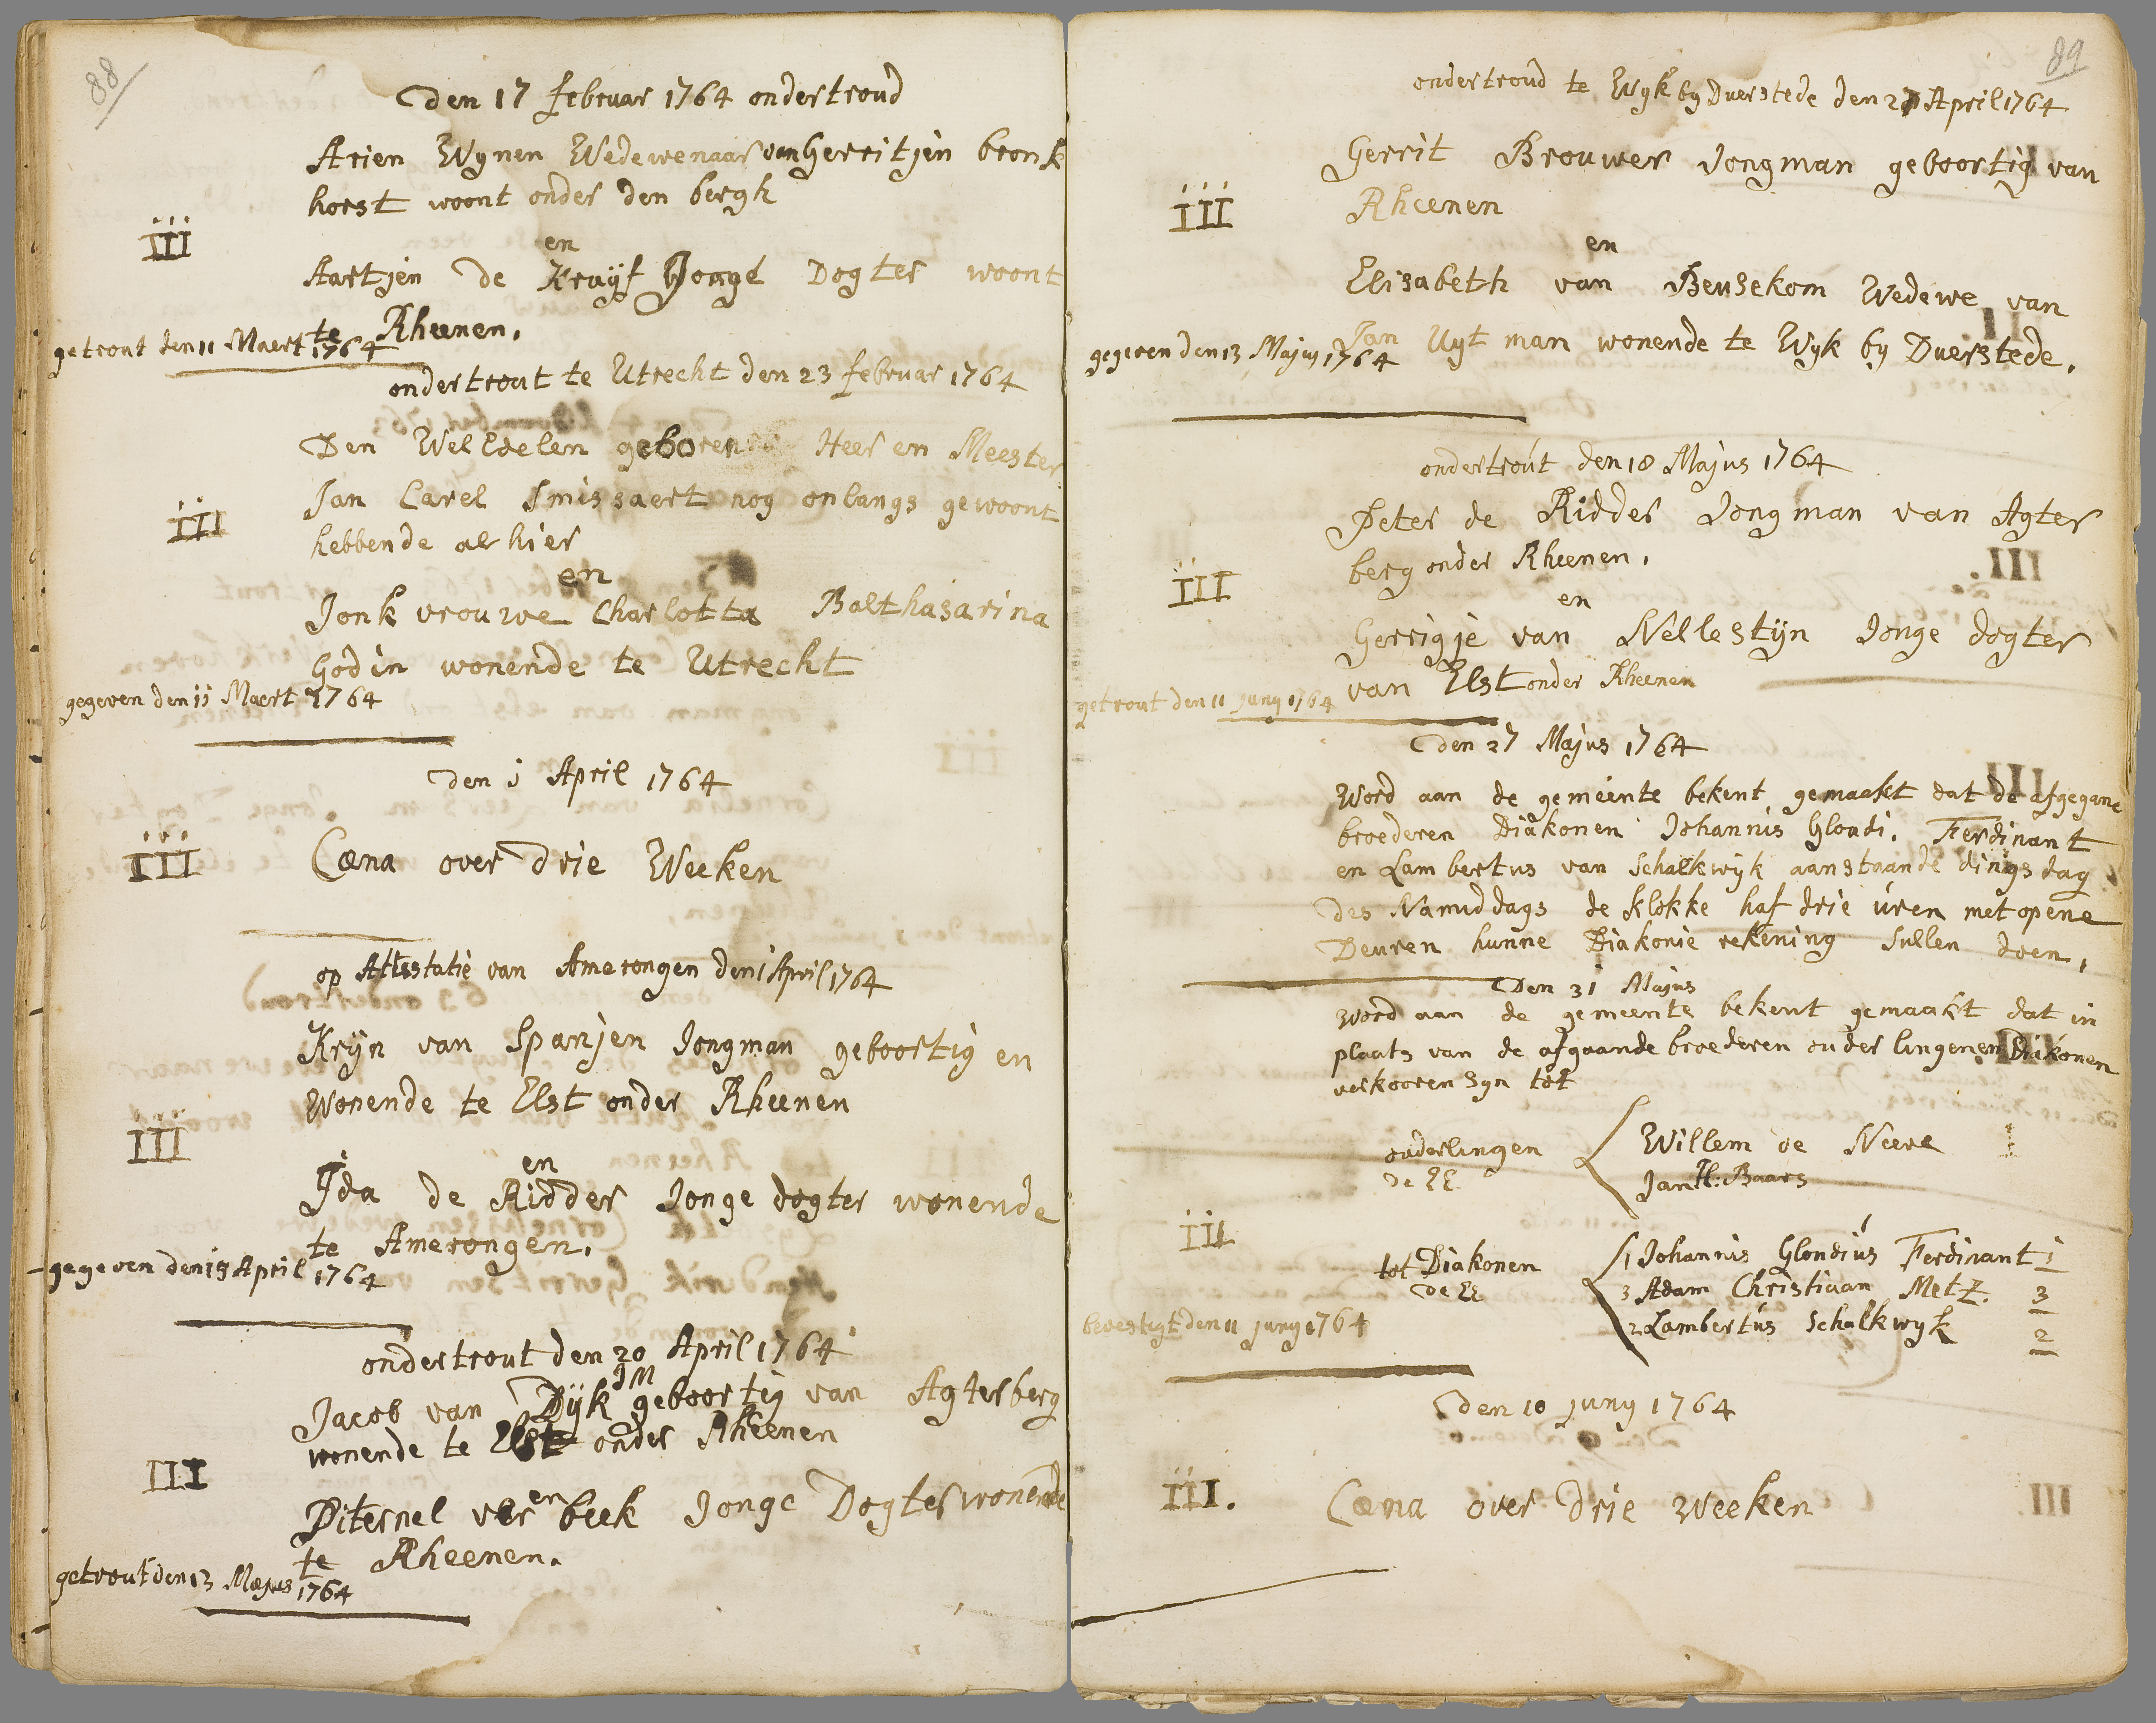 88
den 17 februar 1764 ondertroud
Arien Wynen Wedewenaar van Gerritjen bronk
horst woont onder den bergh
iii
en
Aartjen de Kruÿf Jonge Dogter woont
te Rheenen.
getrout den 11 Maert 1764
ondertrout te Utrecht den 23 februar 1764
Den WelEdelen geboren Heer en Meester
Jan Carel Smissaert nog onlangs gewoont
hebbende alhier
iii
en
Jonk vrouwe Charlotta Balthasarina
Godin wonende te Utrecht
gegeven den 11 Maert 1764
den 1 April 1764
iii
Cæna over drie Weeken
op Attestatie van Amerongen den 1 April 1764
Krÿn van Spanjen Jongman geboortig en
Wonende te Elst onder Rheenen
iii
en
Ida de Ridder Jonge dogter wonende
te Amerongen.
gegeven den 15 April 1764
ondertrout den 20 April 1764
JM
Jacob van Dÿk geboortig van Agterberg
wonende te Elst onder Rheenen
III
en
Piternel ver beek Jonge Dogter wonende
te Rheenen.
getrout den 13 Majus 1764
89
ondertroud te Wyk by Duerstede den 27 April 1764
Gerrit Brouwer Jongman geboortig van
Rheenen
iii
en
Elisabeth van Beusekom Wedewe van
Jan Uyt man wonende te Wyk by Duerstede.
gegeven den 13 Majus 1764
ondertrout den 18 Majus 1764
Peter de Ridder Jongman van Agter
berg onder Rheenen.
iii
en
Gerrigje van Nellestÿn Jonge dogter
van Elst onder Rheenen
getrout den 11 juny 1764
den 27 Majus 1764
Word aan de gemeente bekent gemaakt dat de afgegane
broederen Diakonen Johannis Glondi. Ferdinant
en Lambertus van Schalkwÿk aanstaande dingsdag
des Namiddags de klokke haf drie úren met opene
Deuren hunne Diakonie rekening sullen doen.
Den 31 Majus
Word aan de gemeente bekent gemaakt dat in
plaats van de afgaande broederen ouderlingen en Diakonen
verkooren syn tot
ouderlingen Willem de Neere
de EE Jan H: Baars
iii
tot Diakonen 1 Johannis Glondiús Ferdinant 1
de EE 3 Adam Christiaan Metz. 3
2 Lambertús Schalkwyk 2
bevestigt den 11 juny 1764
den 10 juny 1764
iii.
Cæna over drie weeken